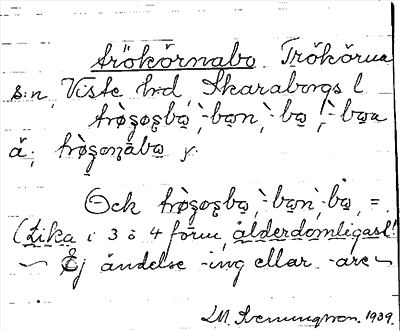 trökörnabo Trökörna
s:n, Viste hrd, Skaraborgs l
trø̀ʂo̯ʂbo̯, -bo̯n, -bo̯, -bo̯a
å; trø̀ʂo̯n̥abo̯
Och trø̀ʂo̯ʂbo̯, -bo̯n, -bo̯, =
(Lika i 3 o 4 form, ålderdomligast!
— Ej ändelse -ing eller -are —
1939.